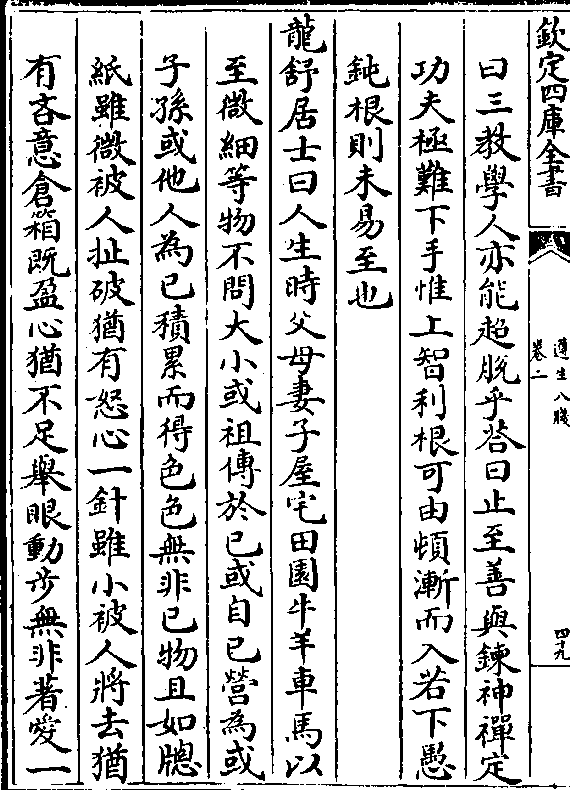 欽定四庫全書
遵生八牋
卷二
四十九
曰三教學人亦能超脫乎荅曰止至善與鍊神禪定
功夫極難下手惟上智利根可由頓漸而入若下愚
鈍根則未易至也
龍舒居士曰人生時父母妻子屋宅田園牛羊車馬以
至微細等物不問大小或祖傳於已或自已營為或
子孫或他人為已積累而得色色無非已物且如牕
紙雖微被人扯破猶有怒心一針雖小被人將去猶
有吝意倉箱既盈心猶不足舉眼動步無非著愛一